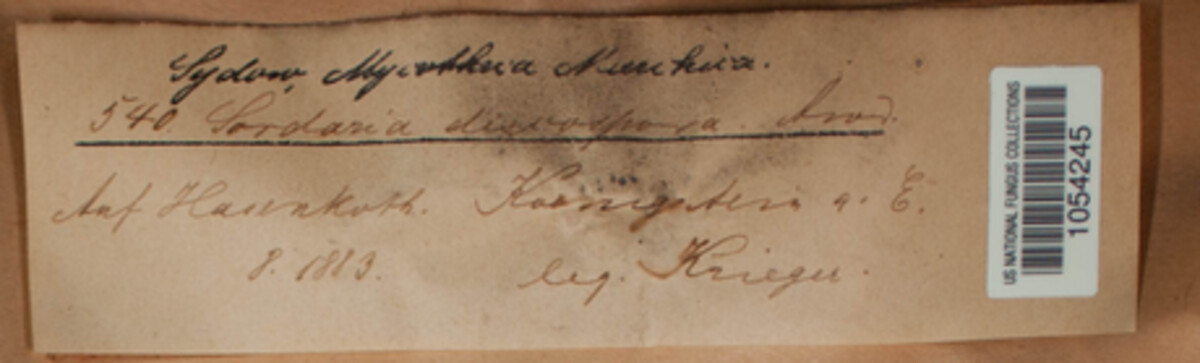 Sydow, Mycotheca Marchica.
540. Sordaria discospora Awd.
Auf Hasenkoth. Koenigstein a. E.
8. 1883. leg. Krieger.
US NATIONAL FUNGUS COLLECTIONS
1054245